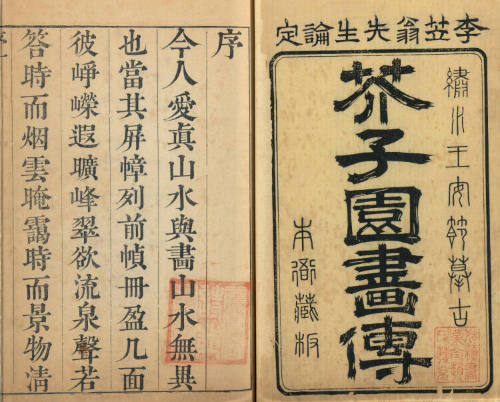 李笠翁先生論定
繡水王安節摹古
芥子園畫傳
本衙藏板
序
今人愛眞山水與畫山水無異
也當其屏幛列前幀冊盈几面
彼崢嶸遐曠峰翠欲流泉聲若
答時而烟雲晻靄時而景物淸